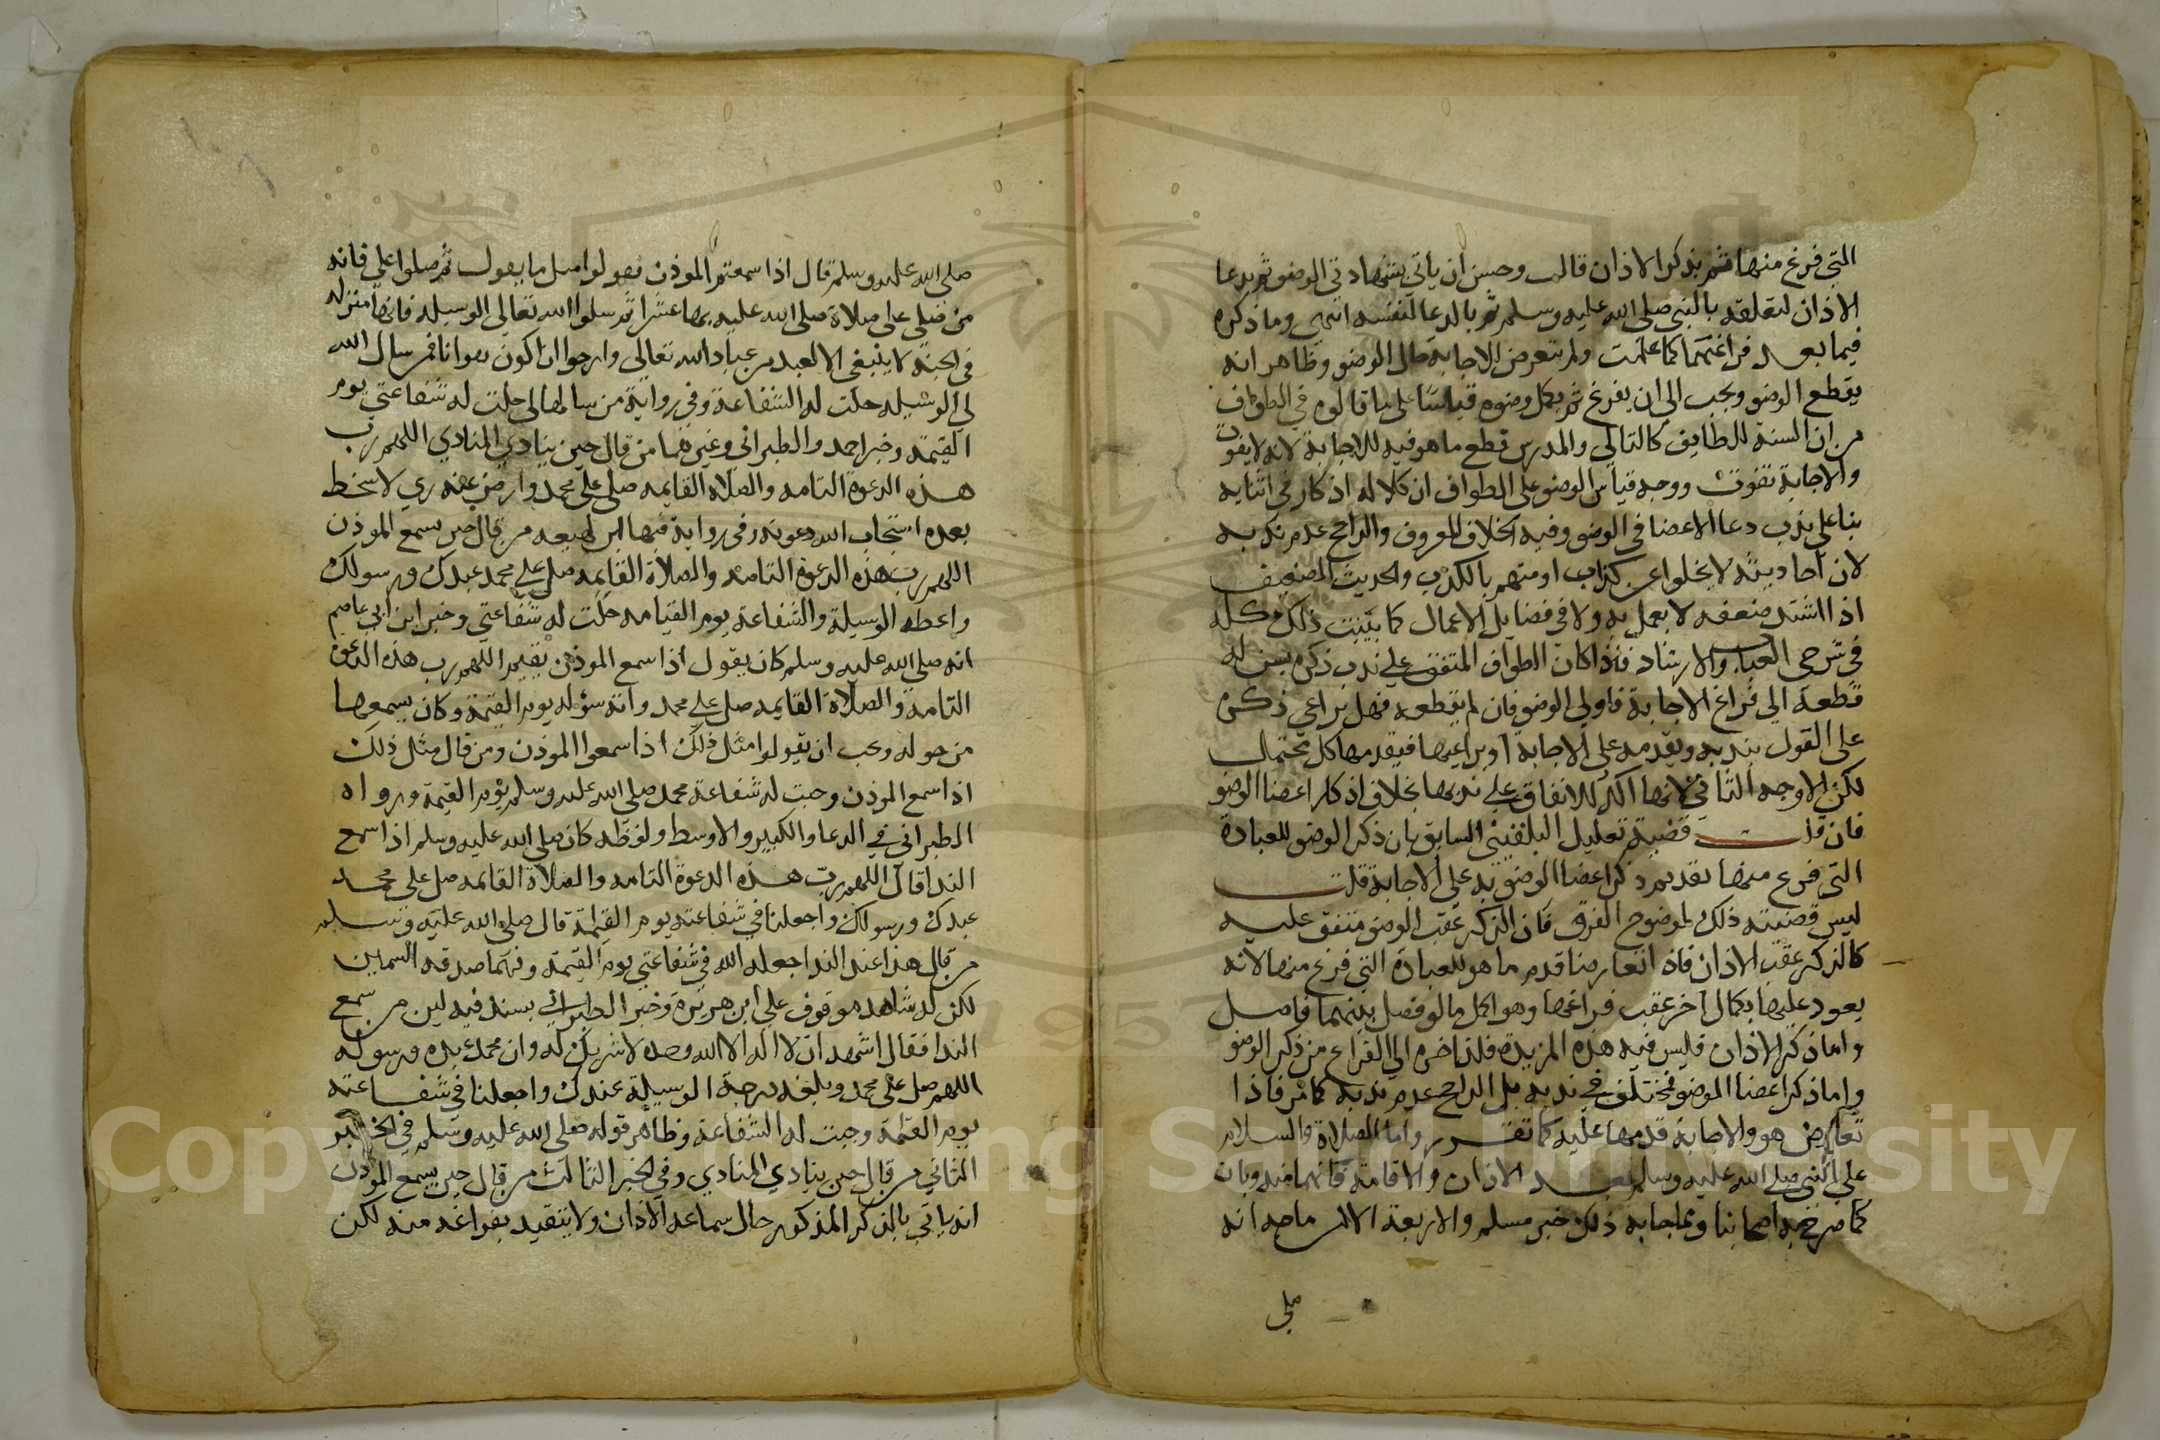 التي فرغ منها ثم بذكر الاذان قال وحسن أن ياتي بشهادتي الوضو ثم بدعا
الاذان لتعلقه بالنبي صلى الله عليه وسلم ثم بالدعا لنفسه انتهى وما ذكره
فيما بعد فراغهما كما علمت ولم يتعرض للاجابة حال الوضو وظاهر انه
يقطع الوضو ويجيب الى ان يفرغ ثم يكمل وضوه قياسًا على ما قالوه في الطواف
من ان السنة للطايف كالتالي والمدرس قطع ما هو فيه للاجابة لانه لا يفوت
والاجابة تفوت ووجه قياس الوضو على الطواف ان كلا له اذكار في اثنايه
بنا على ندب دعا الاعضا في الوضو وفيه الخلاف المعروف والراجح عدم ندبه
لان احاديثه لا يخلوا عن كذاب او متهم بالكذب والحديث الضعيف
اذا اشتد ضعفه لا يعمل به ولا في فضايل الاعمال كما بينت ذلك كله
في شرحي العباب والارشاد فاذا كان الطواف المتفق على ندب ذكره يسن له
قطعه الى فراغ الاجابة فاولى الوضو فان لم يقطعه فهل يراعي ذكره
على القول بندبه ويقدمه على الاجابة او يراعيها فيقدمها كل محتمل
لكن الاوجه الثاني لانها اكد للاتفاق على ندبها بخلاف اذكار اعضا الوضو
فان قلت قضية تعليل البلقيني السابق بان ذكر الوضو للعبادة
التي فرغ منها تقديم ذكر اعضا الوضو به على الاجابة قلت
ليس قضيته ذلك لوضوح الفرق فان الذكر عقب الوضو متفق عليه
كالذكر عقب الاذان فاذا تعارضا قدم ما هو للعبادة التي فرغ منها لانه
يعود عليها بكمال اخر عقب فراغها وهو اكمل مما لو فصل بينهما فاصل
واما ذكر الاذان فليس فيه هذه المزيدة فلذا اخره الى الفراغ من ذكر الوضو
واما ذكر اعضا الوضو فمختلف في ندبه بل الراجح عدم ندبه كما مر فاذا
تعارض هو والاجابة قدمها عليه كما تقرر واما الصلاة والسلام
على النبي صلى الله عليه وسلم بعد الاذان والاقامة فانهما مندوبان
كما صرح به اصحابنا ومما جا به ذلك خبر مسلم والاربعة الا ابن ماجه انه
صلى
صلى الله عليه وسلم قال اذا سمعتم الموذن فقولوا مثل ما يقول ثم صلوا علي فانه
من صلى علي صلاة صلى الله عليه بها عشرا ثم سلوا الله تعالى الوسيله فانها منزله
في الجنة لا ينبغي الا لعبد من عباد الله تعالى وارجوا ان اكون هو انا فمن سال الله
لي الوسيله حلت له الشفاعة وفي رواية من سالها لي حلت له شفاعتي يوم
القيمة وخبر احمد والطبراني وغيرهما من قال حين ينادي المنادي اللهم رب
هذه الدعوة التامه والصلاة القايمه صلي على محمد وارض عنه رضي لا سخط
بعده استجاب الله دعوته وفي رواية فيها ابن لهيعه من قال حين يسمع الموذن
اللهم رب هذه الدعوة التامة والصلاة القايمة صل على محمد عبدك ورسولك
واعطه الوسيلة والشفاعة يوم القيامه حلت له شفاعتي وخبر ابن ابي عاصم
انه صلى الله عليه وسلم كان يقول اذا سمع الموذن يقيم اللهم رب هذه الدعوة
التامة والصلاة القايمه صل على محمد واته سؤله يوم القيمة وكان يسمعها
من حوله ويحب ان يقولوا مثل ذلك اذا سمعوا الموذن ومن قال مثل ذلك
اذا سمع الموذن وجبت له شفاعة محمد صلى الله عليه وسلم يوم القيمة ورواه
الطبراني في الدعا والكبير والاوسط ولفظه كان صلى الله عليه وسلم اذا سمع
الندا قال اللهم رب هذه الدعوة التامه والصلاة القائمه صل على محمد
عبدك ورسولك واجعلنا في شفاعته يوم القيمة قال صلى الله عليه وسلم
من قال هذا عند الندا جعله الله في شفاعتي يوم القيمة وفيهما صدقه السمين
لكن له شاهد موقوف على ابن هريرة وخبر الطبراني بسند فيه لين من سمع
الندا فقال اشهد ان لا اله الا الله وحده لا شريك له وان محمد عبده ورسوله
اللهم صل على محمد وبلغه درجة الوسيلة عندك واجعلنا في شفاعته
يوم القيمة وجبت له الشفاعة وظاهر قوله صلى الله عليه وسلم في الخبر
الثاني من قال حين ينادي المنادي وفي الخبر الثالث من قال حين يسمع الموذن
انه ياتي بالذكر المذكور حال سماعه الاذان ولا يتقيد بفراغه منه لكن
Copyright © King Saud University
1957